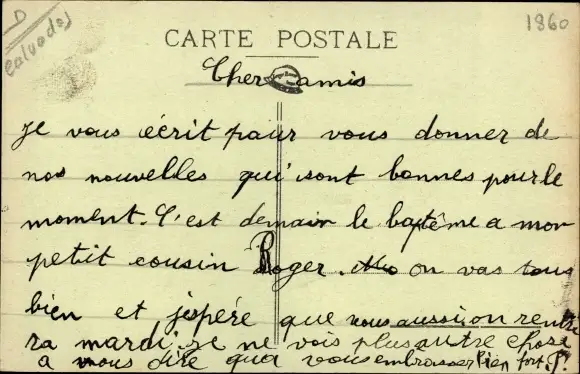 D
Calvados
1960
CARTE POSTALE
Cher amis
Je vous écrit pour vous donner de
nos nouvelles qui sont bonnes pour le
moment. C'est demain le baptême a mon
petit cousin Roger. on vas tous
bien et j'espére que vous aussi, on rentre
ra mardi. je ne vois plus autre chose
a vous dire qua vous embrasser bien fort. J.